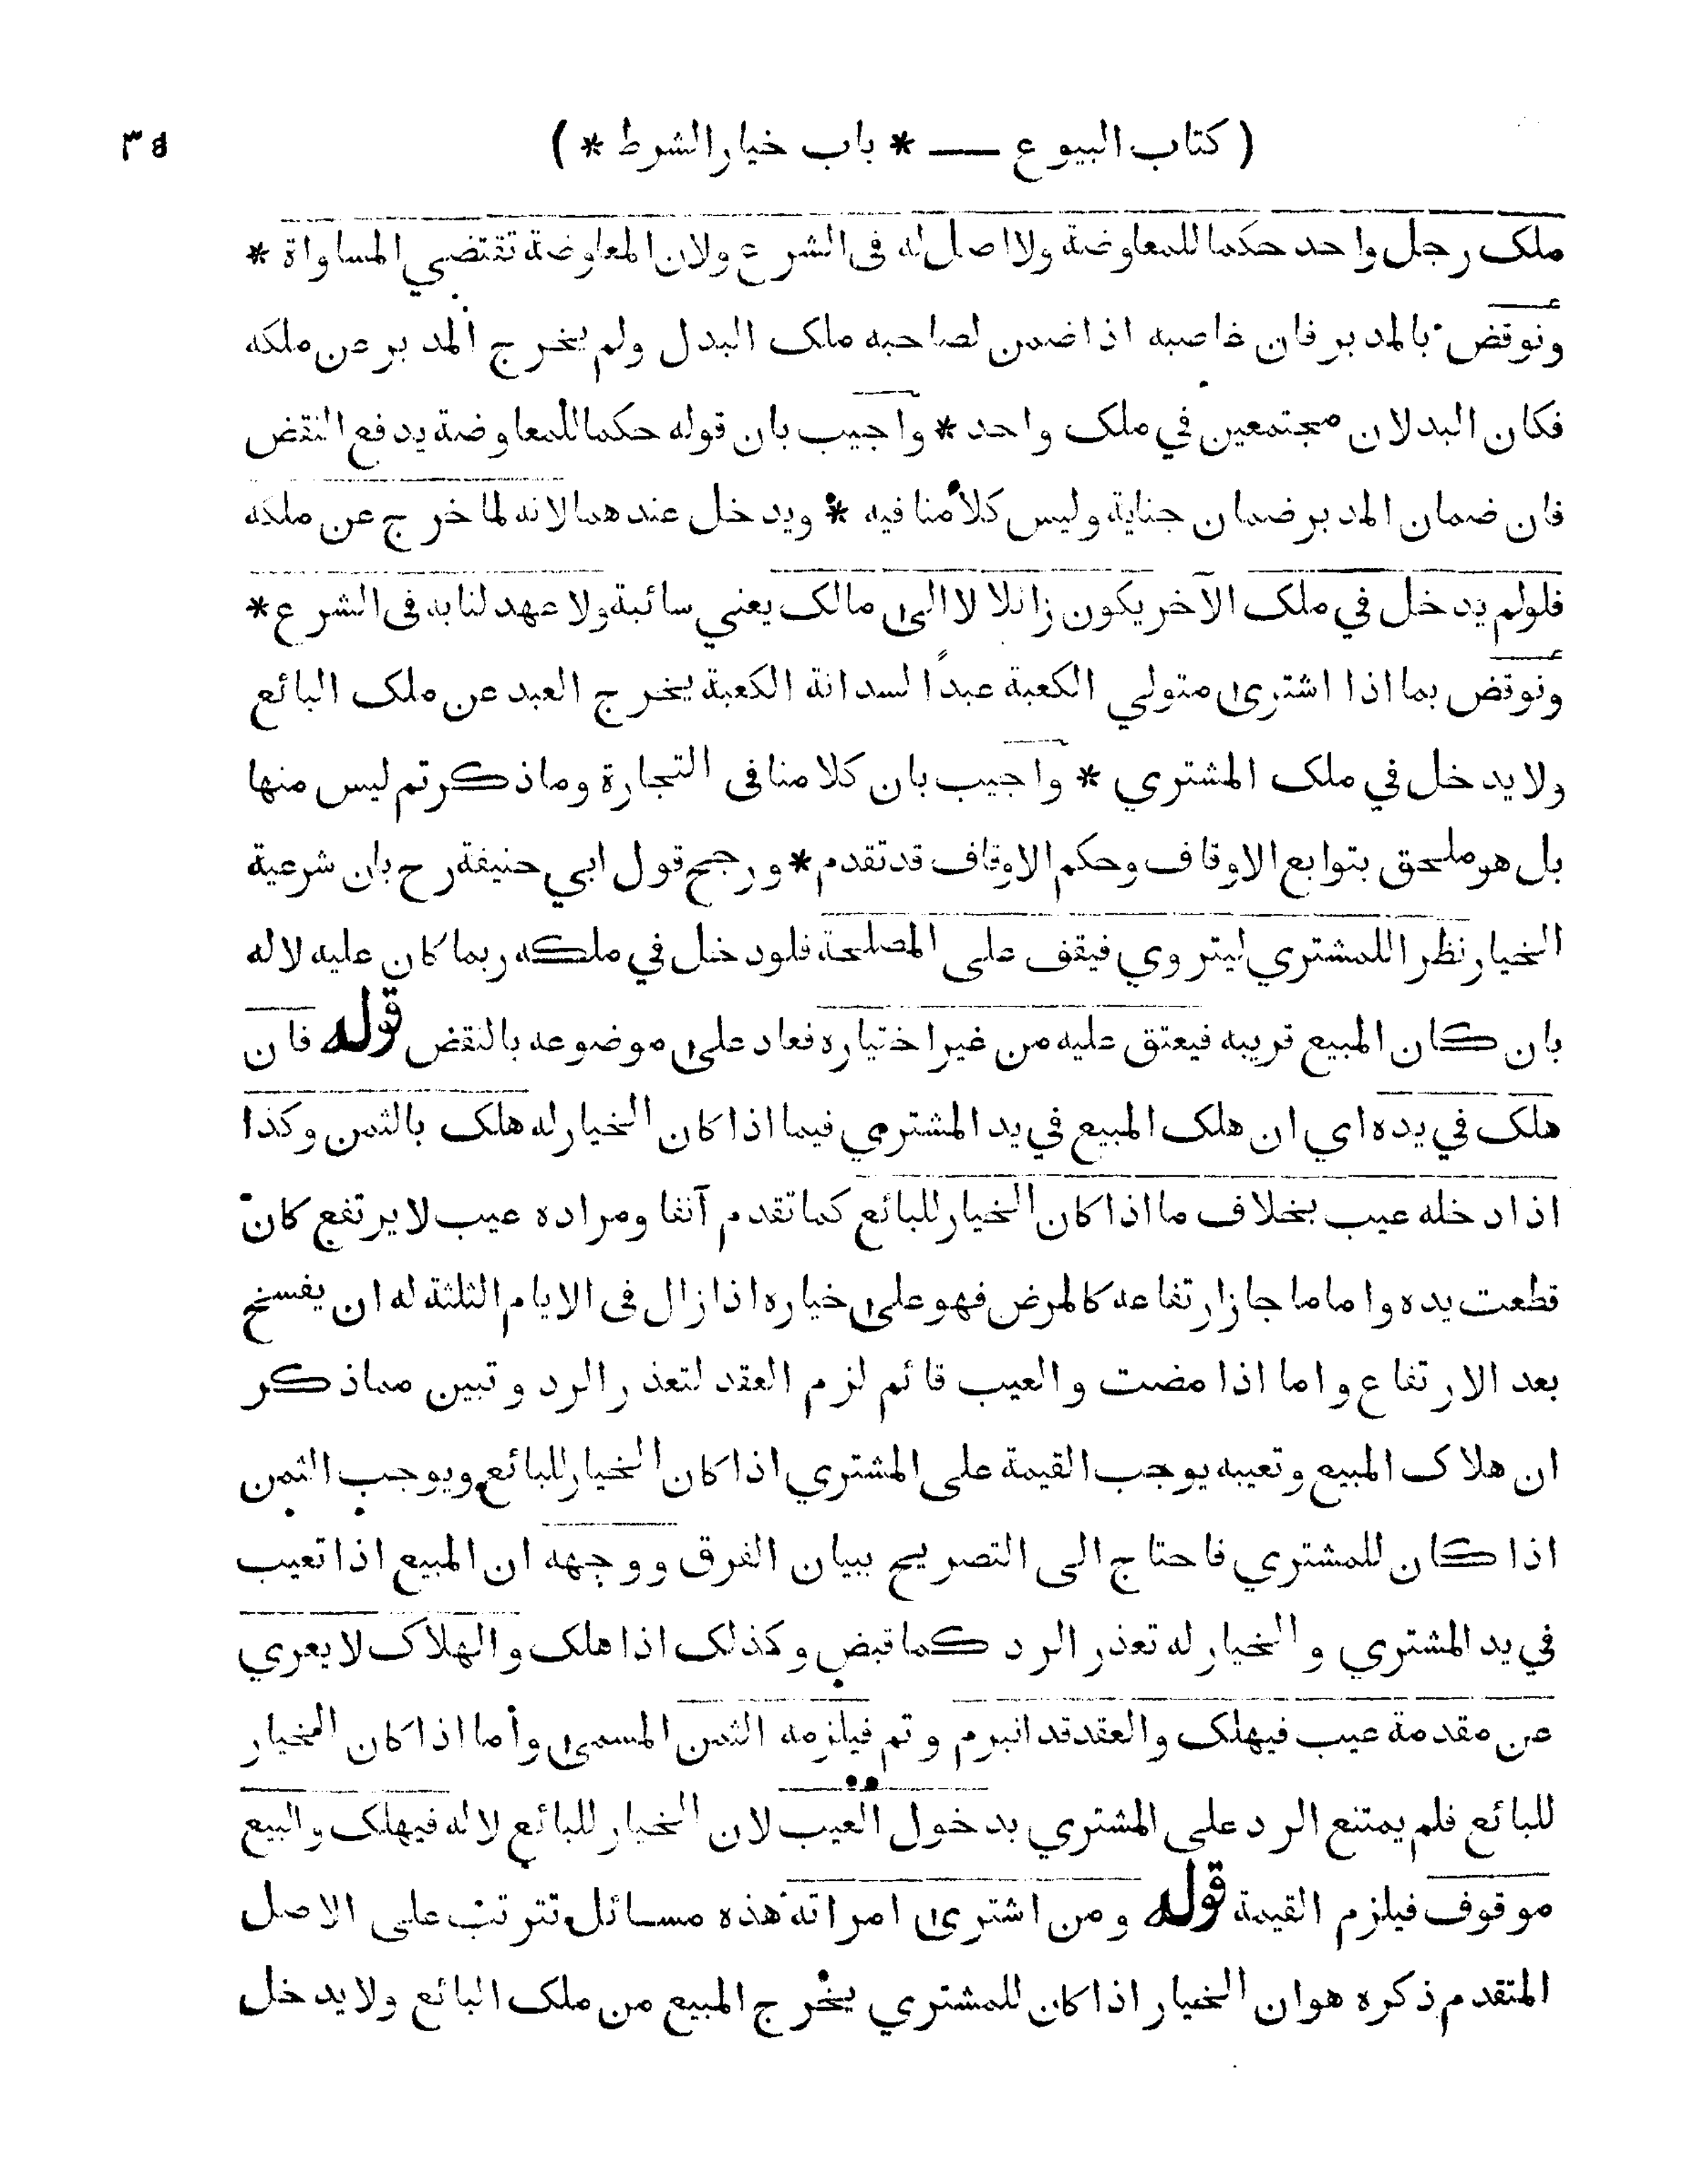 ( كتاب البيوع — * باب خيار الشرط * ) ٣٥
ملك رجل واحد حكما للمعاوضة ولا اصل له فى الشرع ولان المعاوضة تقتضي المساواة *
ونوقض بالمدبر فان غاصبه اذا ضمن لصاحبه ملك البدل ولم يخرج المدبر عن ملكه
فكان البدلان مجتمعين في ملك واحد * واجيب بان قوله حكما للمعاوضة يدفع النقض
فان ضمان المدبر ضمان جناية وليس كلامنا فيه * ويدخل عندهما لانه لما خرج عن ملكه
فلولم يدخل في ملك الآخر يكون زائلا لا الى مالك يعني سائبة ولا عهد لنا به فى الشرع *
ونوقض بما اذا اشترى متولي الكعبة عبدًا لسدانة الكعبة يخرج العبد عن ملك البائع
ولا يدخل في ملك المشتري * واجيب بان كلامنا فى التجارة وما ذكرتم ليس منها
بل هو ملحق بتوابع الاوقاف وحكم الاوقاف قد تقدم * ورجح قول ابي حنيفة رح بان شرعية
الخيار نظرا للمشتري ليتروي فيقف على المصلحة فلو دخل في ملكه ربما كان عليه لا له
بان كان المبيع قريبه فيعتق عليه من غير اختياره فعاد على موضوعه بالنقض قوله فان
هلك في يده اي ان هلك المبيع في يد المشتري فيما اذا كان الخيار له هلك بالثمن وكذا
اذا دخله عيب بخلاف ما اذا كان الخيار للبائع كما تقدم آنفا ومراده عيب لا يرتفع كان
قطعت يده واما ما جاز ارتفاعه كالمرض فهو على خياره اذا زال فى الايام الثلثة له ان يفسخ
بعد الارتفاع واما اذا مضت والعيب قائم لزم العقد لتعذر الرد وتبين مما ذكر
ان هلاك المبيع وتعيبه يوجب القيمة على المشتري اذا كان الخيار للبائع ويوجب الثمن
اذا كان للمشتري فاحتاج الى التصريح ببيان الفرق ووجهه ان المبيع اذا تعيب
في يد المشتري والخيار له تعذر الرد كما قبض وكذلك اذا هلك والهلاك لا يعري
عن مقدمة عيب فيهلك والعقد قد انبرم وتم فيلزمه الثمن المسمى وأما اذا كان الخيار
للبائع فلم يمتنع الرد على المشتري بدخول العيب لان الخيار للبائع لا له فيهلك والبيع
موقوف فيلزم القيمة قوله ومن اشترى امراته هذه مسائل تترتب على الاصل
المتقدم ذكره هو ان الخيار اذا كان للمشتري يخرج المبيع من ملك البائع ولا يدخل